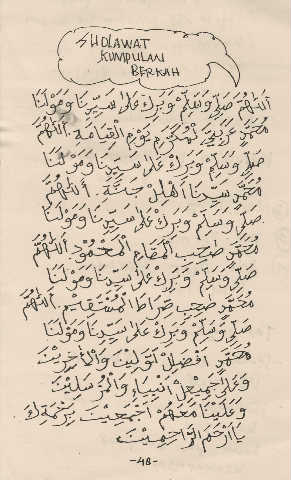 SHOLAWAT
KUMPULAN
BERKAH
اَللّٰهُمَّ صَلِّ وَسَلِّمْ وَبَرِكْ عَلٰى سَيِّدِنَا وَمَوْلٰنَا
مُحَمَّدٍ يَوْمِ الْقِيَامَةِ اَللّٰهُمَّ
صَلِّ وَسَلِّمْ وَبَرِكْ عَلٰى سَيِّدِنَا وَمَوْلٰنَا
مُحَمَّدٍ سَيِّدِنَا اَهْلِلْ جَنَّةِ اَللّٰهُمَّ
صَلِّ وَسَلِّمْ وَبَرِكْ عَلٰى سَيِّدِنَا وَمَوْلٰنَا
مُحَمَّدٍ صَحِبِ الْمَقَامِ الْمَحْمُوْدِ اَللّٰهُمَّ
صَلِّ وَسَلِّمْ وَبَرِكْ عَلٰى سَيِّدِنَا وَمَوْلٰنَا
مُحَمَّدٍ صَحِبِ صِرَاطَ الْمُسْتَقِيْمِ اَللّٰهُمَّ
صَلِّ وَسَلِّمْ وَبَرِكْ عَلٰى سَيِّدِنَا وَمَوْلٰنَا
مُحَمَّدٍ اَفْضَلِ لْأَوَّلِيْنَ وَالْأٰخِرِيْنَ
وَعَلٰى جَمِيْعِلْ اَنْبِيَاءِ وَالْمُرْسَلِيْنَ
وَعَلَيْنَا مَعَهُمْ اَجْمَعِيْنَ بِرَحْمَتِكَ
يَا اَرْحَمَ الرَّاحِمِيْنَ
-48-